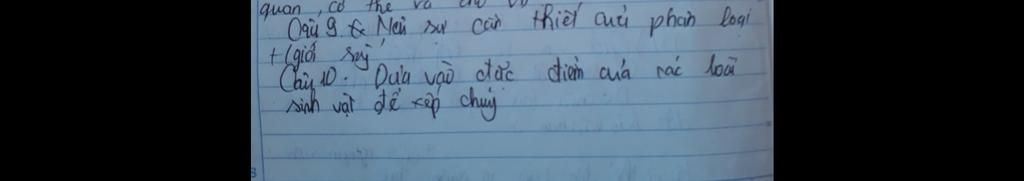 quan, có thể và cho
Câu 9. Nêu sự cần thiết cuả phân loại
t giới sv
Câu 10. Dưạ vào đặc điểm cuả các loài
sinh vật để xếp chúng